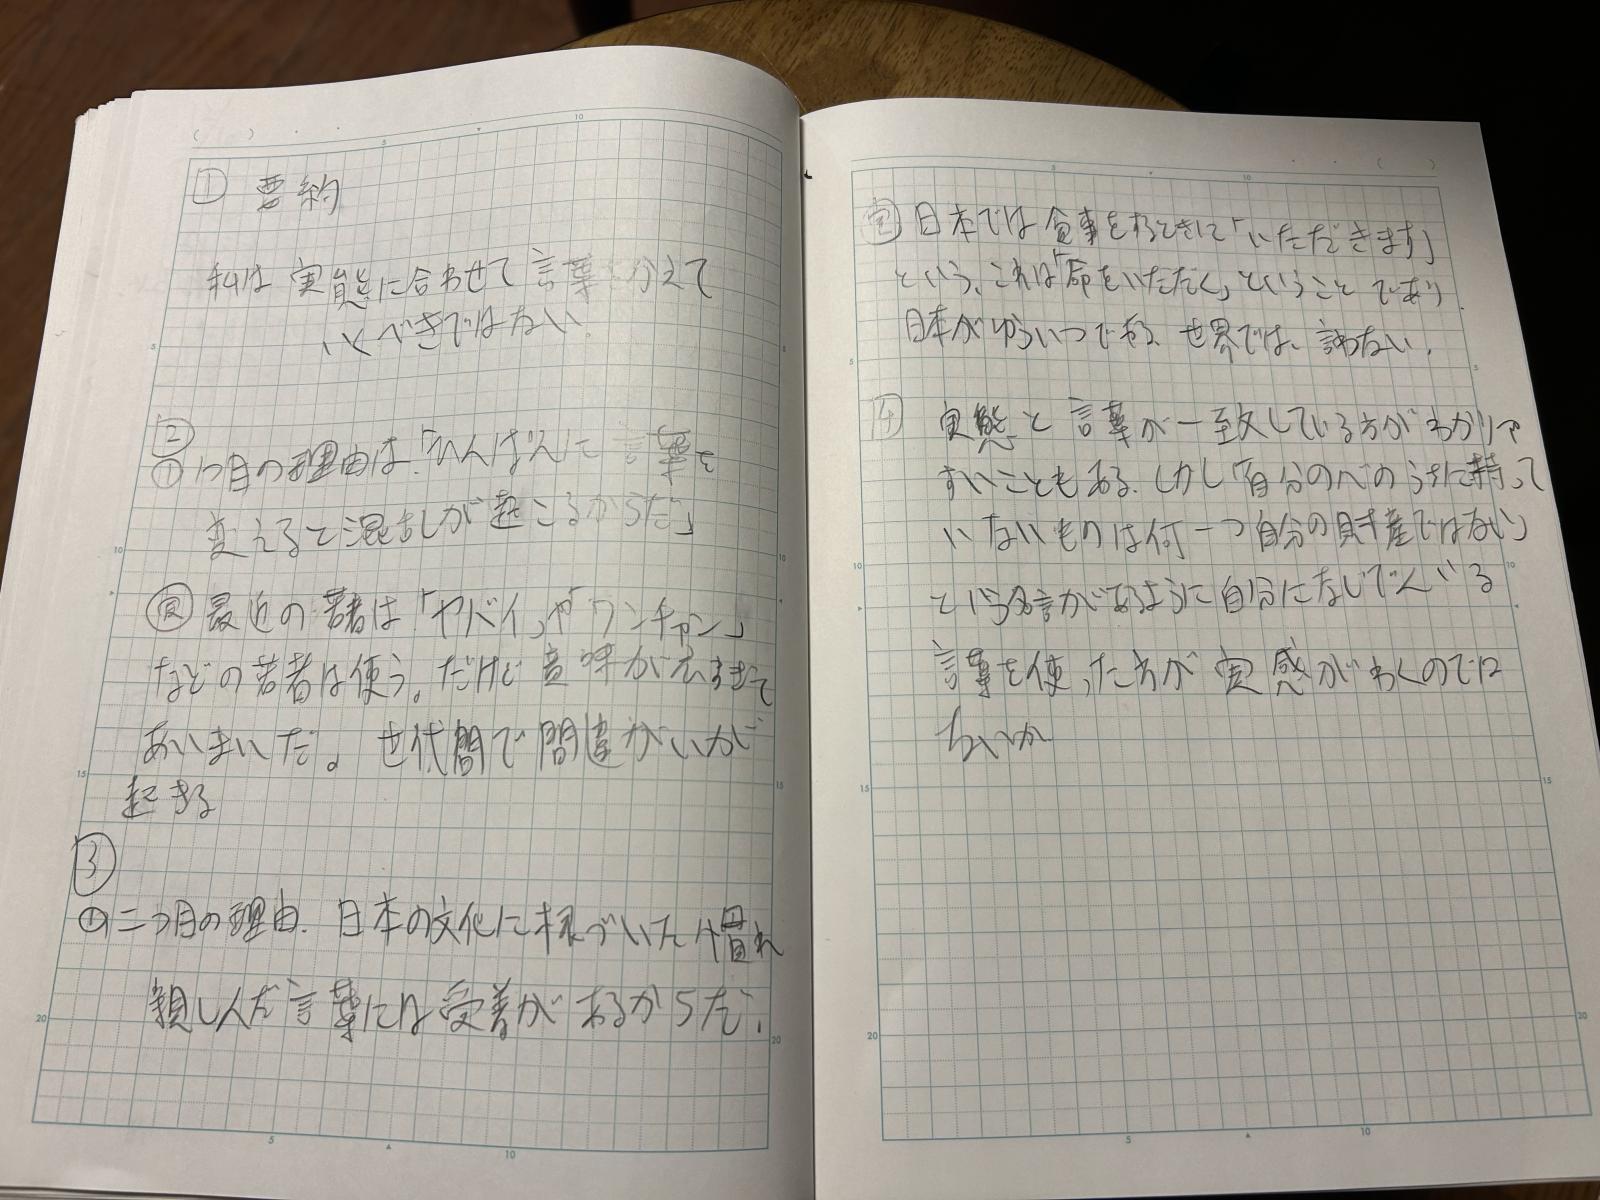 ① 要約
私は実態に合わせて言葉を変えて
いくべきではない。
②
① 1つ目の理由は「ひんぱんに言葉を
変えると混乱が起こるからだ」
最近の若者は「ヤバイ」や「ワンチャン」
などの若者は使う。だけど意味が広すぎて
あいまいだ。世代間で間違がいが
起きる
③
二つ目の理由. 日本の文化に根づいた慣れ
親しんだ言葉には愛着があるからだ.
日本では食事をするときに「いただきます」
という、これは「命をいただく」ということであり.
日本がゆういつである 世界では、言わない.
4 実態と言葉が一致している方がわかりや
すいこともある. しかし「自分の心のうちに持って
いないものは何一つ自分の財産ではない」
という名言があるように自分になじんでいる
言葉を使った方が実感がわくのでは
ないか